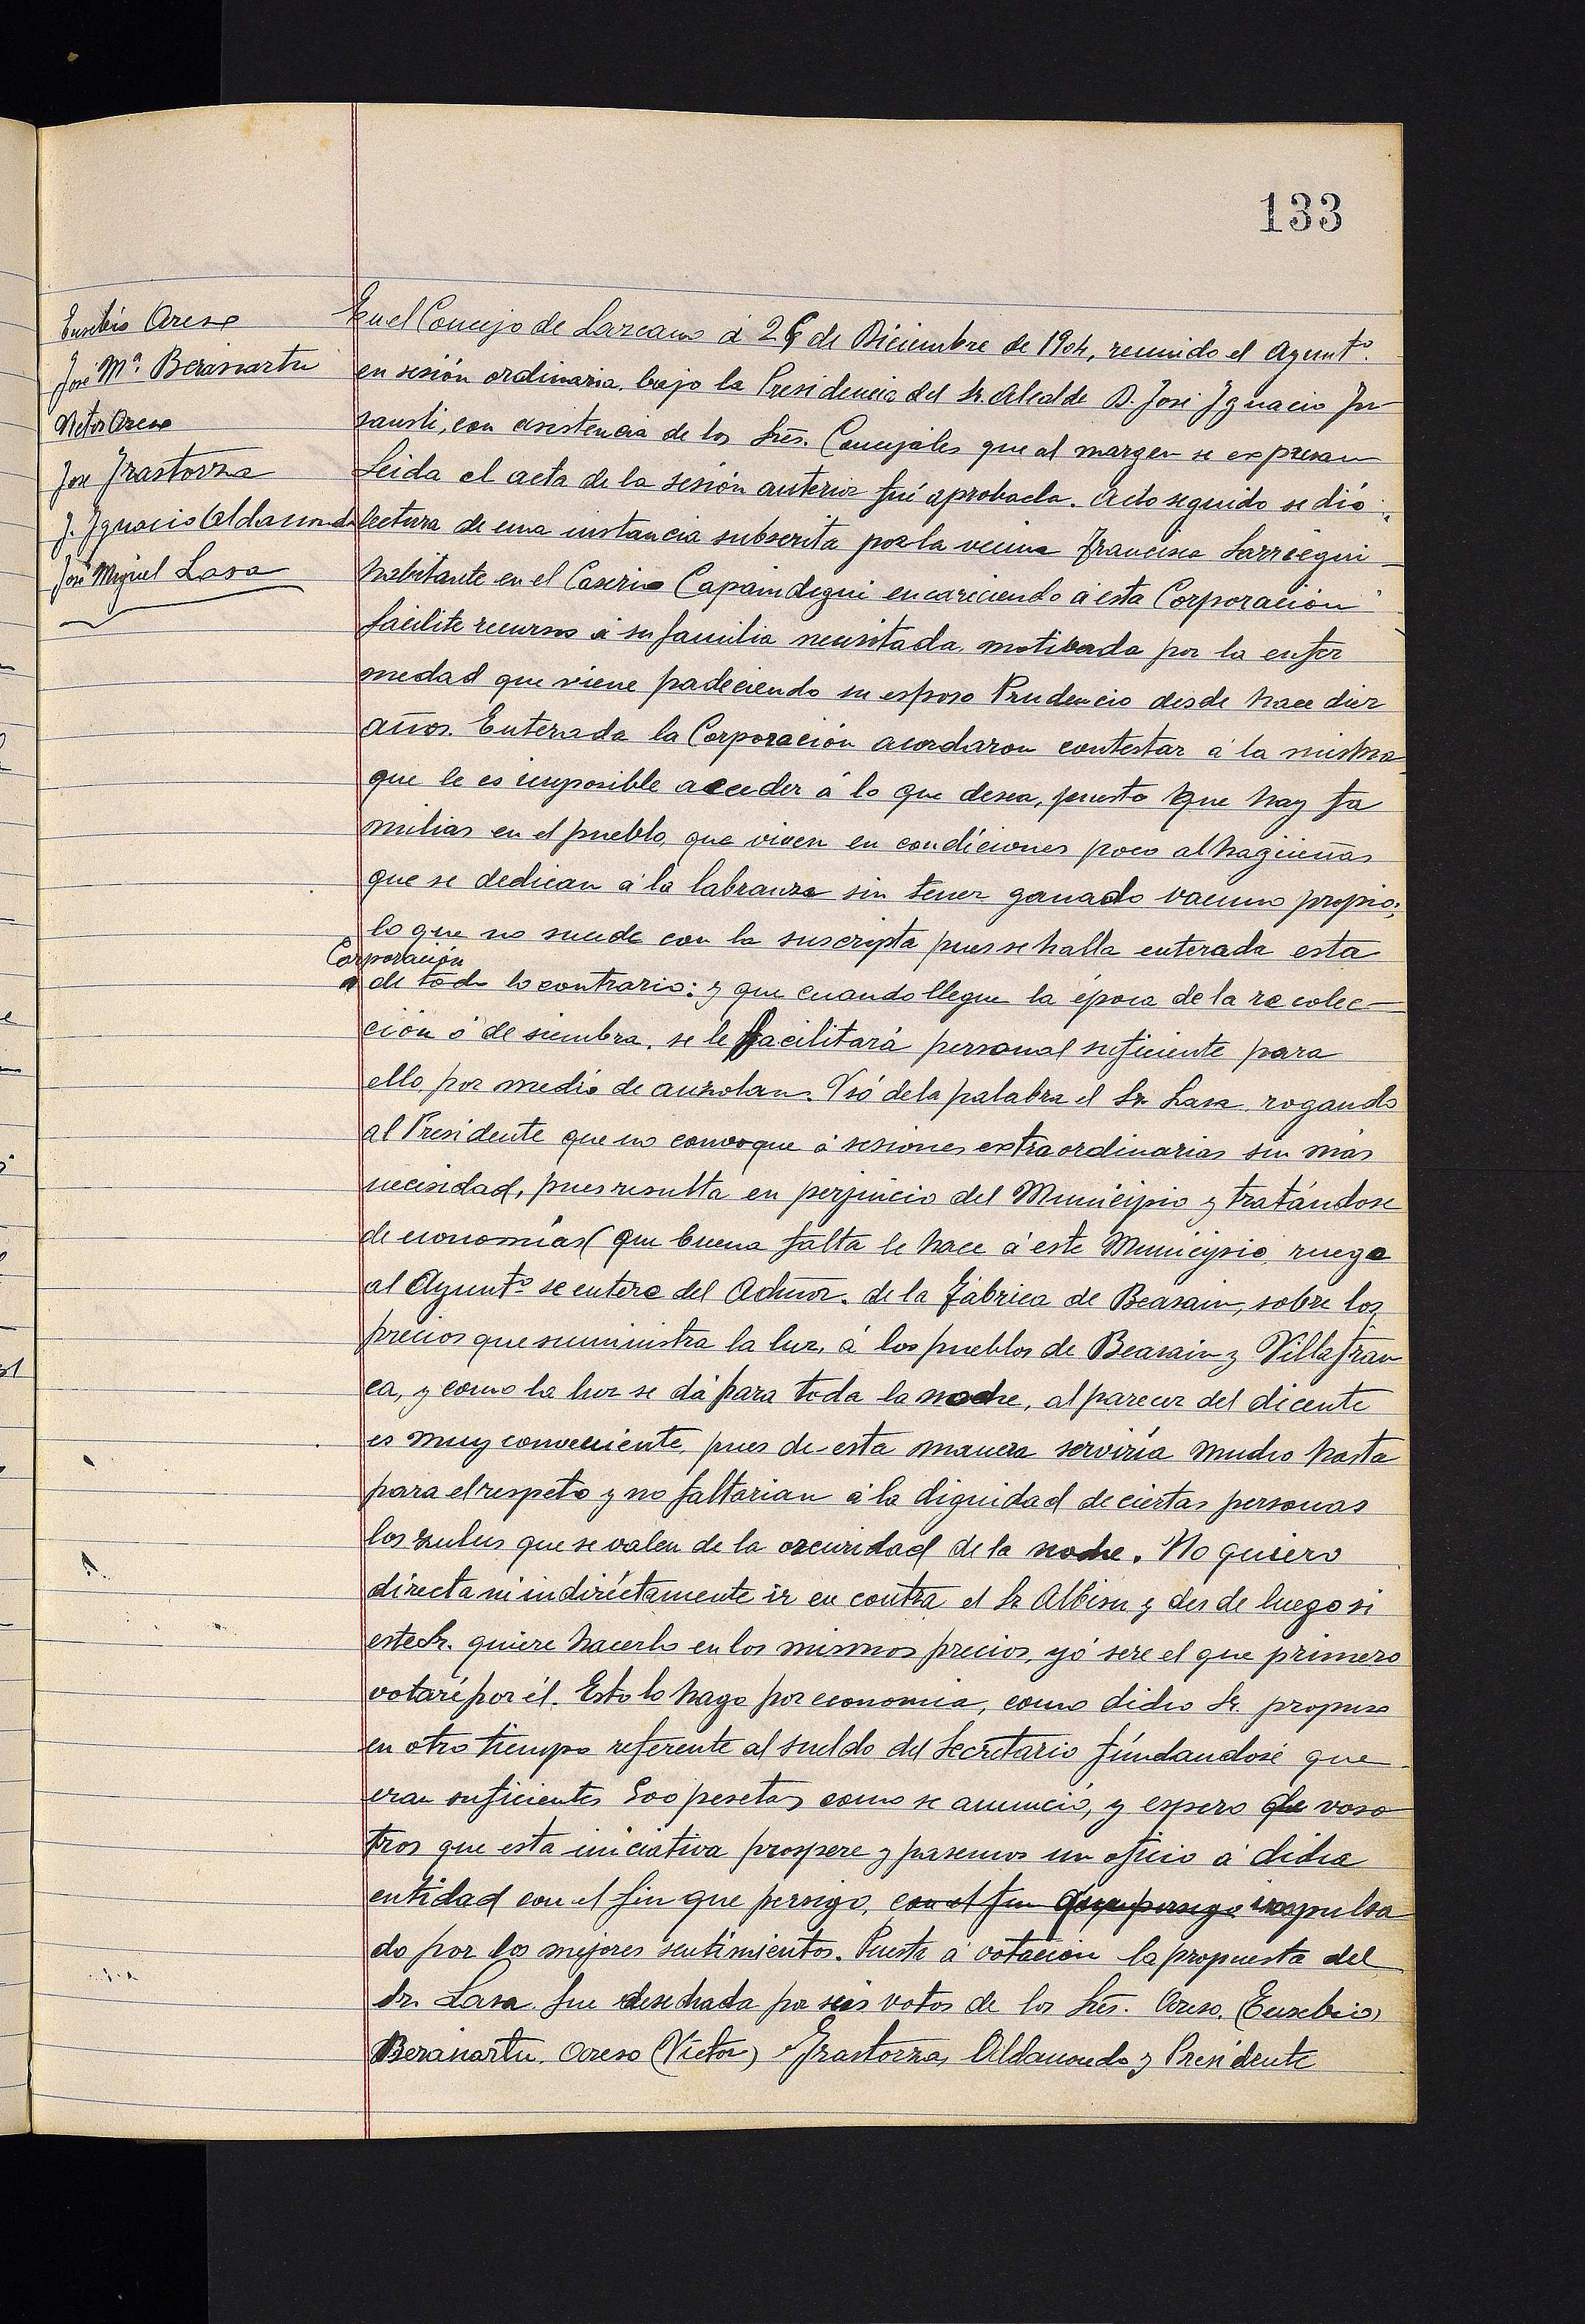 133
Eusebio Areso
José Mª Beranartu
Victor Areso
José Irastorza
J. Ignacio Aldasoro
José Miguel Lasa
En el Concejo de Lazcano á 26 de Diciembre de 1904, reunido el Ayuntº.
en sesión ordinaria bajo la Presidencia del Sr. Alcalde D. José Ignacio In
sausti, con asistencia de los Srēs. Concejales que al margen se expresan
Leida el acta de la sesión anterior fué aprobada. Acto seguido se dió
lectura de una instancia subscrita por la vecina Francisca Larrégui
habitante en el Caserio Capaindegui encareciendo á esta Corporación
facilite recursos á su familia necesitada, motivada por la enfer
medad que viene padeciendo su esposo Prudencio desde hace diez
años. Enterada la Corporación acordaron contestar á la misma
que le es imposible acceder á lo que desea, puesto que hay fa
milias en el pueblo, que viven en condiciones poco alhagüeñas
que se dedican á la labranza sin tener ganado vacuno propio;
lo que no sucede con la suscripta pues se halla enterada esta
Corporación
de todo lo contrario: y que cuando llegue la época de la recolec-
ción ó de siembra, se le facilitará personal suficiente para
ello, por medio de auzolan. Usó de la palabra el Sr. Lasa rogando
al Presidente que no convoque á sesiones extraordinarias sin más
necesidad, pues resulta en perjuicio del Municipio y tratándose
de economias (que buena falta le hace á este Municipio, ruego
al Ayuntº se entere del Admor. de la Fábrica de Beasain, sobre los
precios que suministra la luz, á los pueblos de Beasain y Villafran
ca, y como la luz se dá para toda la noche, al parecer del dicente
es muy conveniente, pues de esta manera serviría mucho hasta
para el respeto y no faltarian á la dignidad de ciertas personas
los zulus que se valen de la oscuridad de la noche. No quiero
directa ni indiréctamente ir en contra el Sr Albisu y des de luego si
este Sr. quiere hacerlo en los mismos precios, yó sere el que primero
votaré por él. Esto lo hago por economia, como dicho Sr. propuso
en otro tiempo referente al sueldo del Secretario fúndandosé que
eran suficientes 500 pesetas como se anunció, y espero de voso
tros que esta iniciativa prospere y pasemos un oficio á dicha
entidad con el fin que persigo, con el fin que persigo impulsa
do por los mejores sentimientos. Puesta á votación la propuesta del
Sr. Lasa fue desechada por seis votos de los Srēs. Areso, (Eusebio)
Beranartu, Areso (Victor) Irastorza, Aldasoro y Presidente